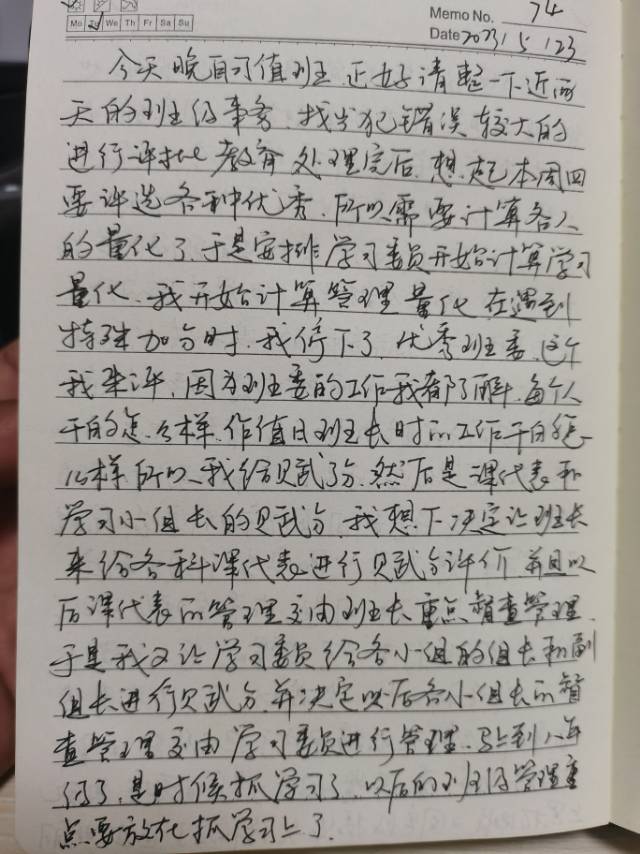 Mo Tu We Th Fr Sa Su
Memo No. 74
Date 2023 / 5 / 23
今天晚自习值班,正好清整一下近两
天的班级事务,找出犯错误较大的
进行评批教育处理完后,想起本周四
要评选各种优秀,所以需要计算各人
的量化了,于是安排学习委员开始计算学习
量化,我开始计算管理量化,在遇到
特殊加分时,我停下了,优秀班委,这个
我来评,因为班委的工作我都了解,每个人
干的怎么样,作值日班长时的工作干的怎
么样,所以,我给赋分,然后是课代表和
学习小组长的赋分,我想下决定让班长
来给各科课代表进行赋分评价,并且以
后课代表的管理交由班长重点督查管理,
于是我又让学习委员给各小组的组长和副
组长进行赋分,并决定以后各小组长的督
查管理交由学习委员进行管理,马上到八年
级了,是时候抓学习了,以后的班级管理重
点要放在抓学习上了.